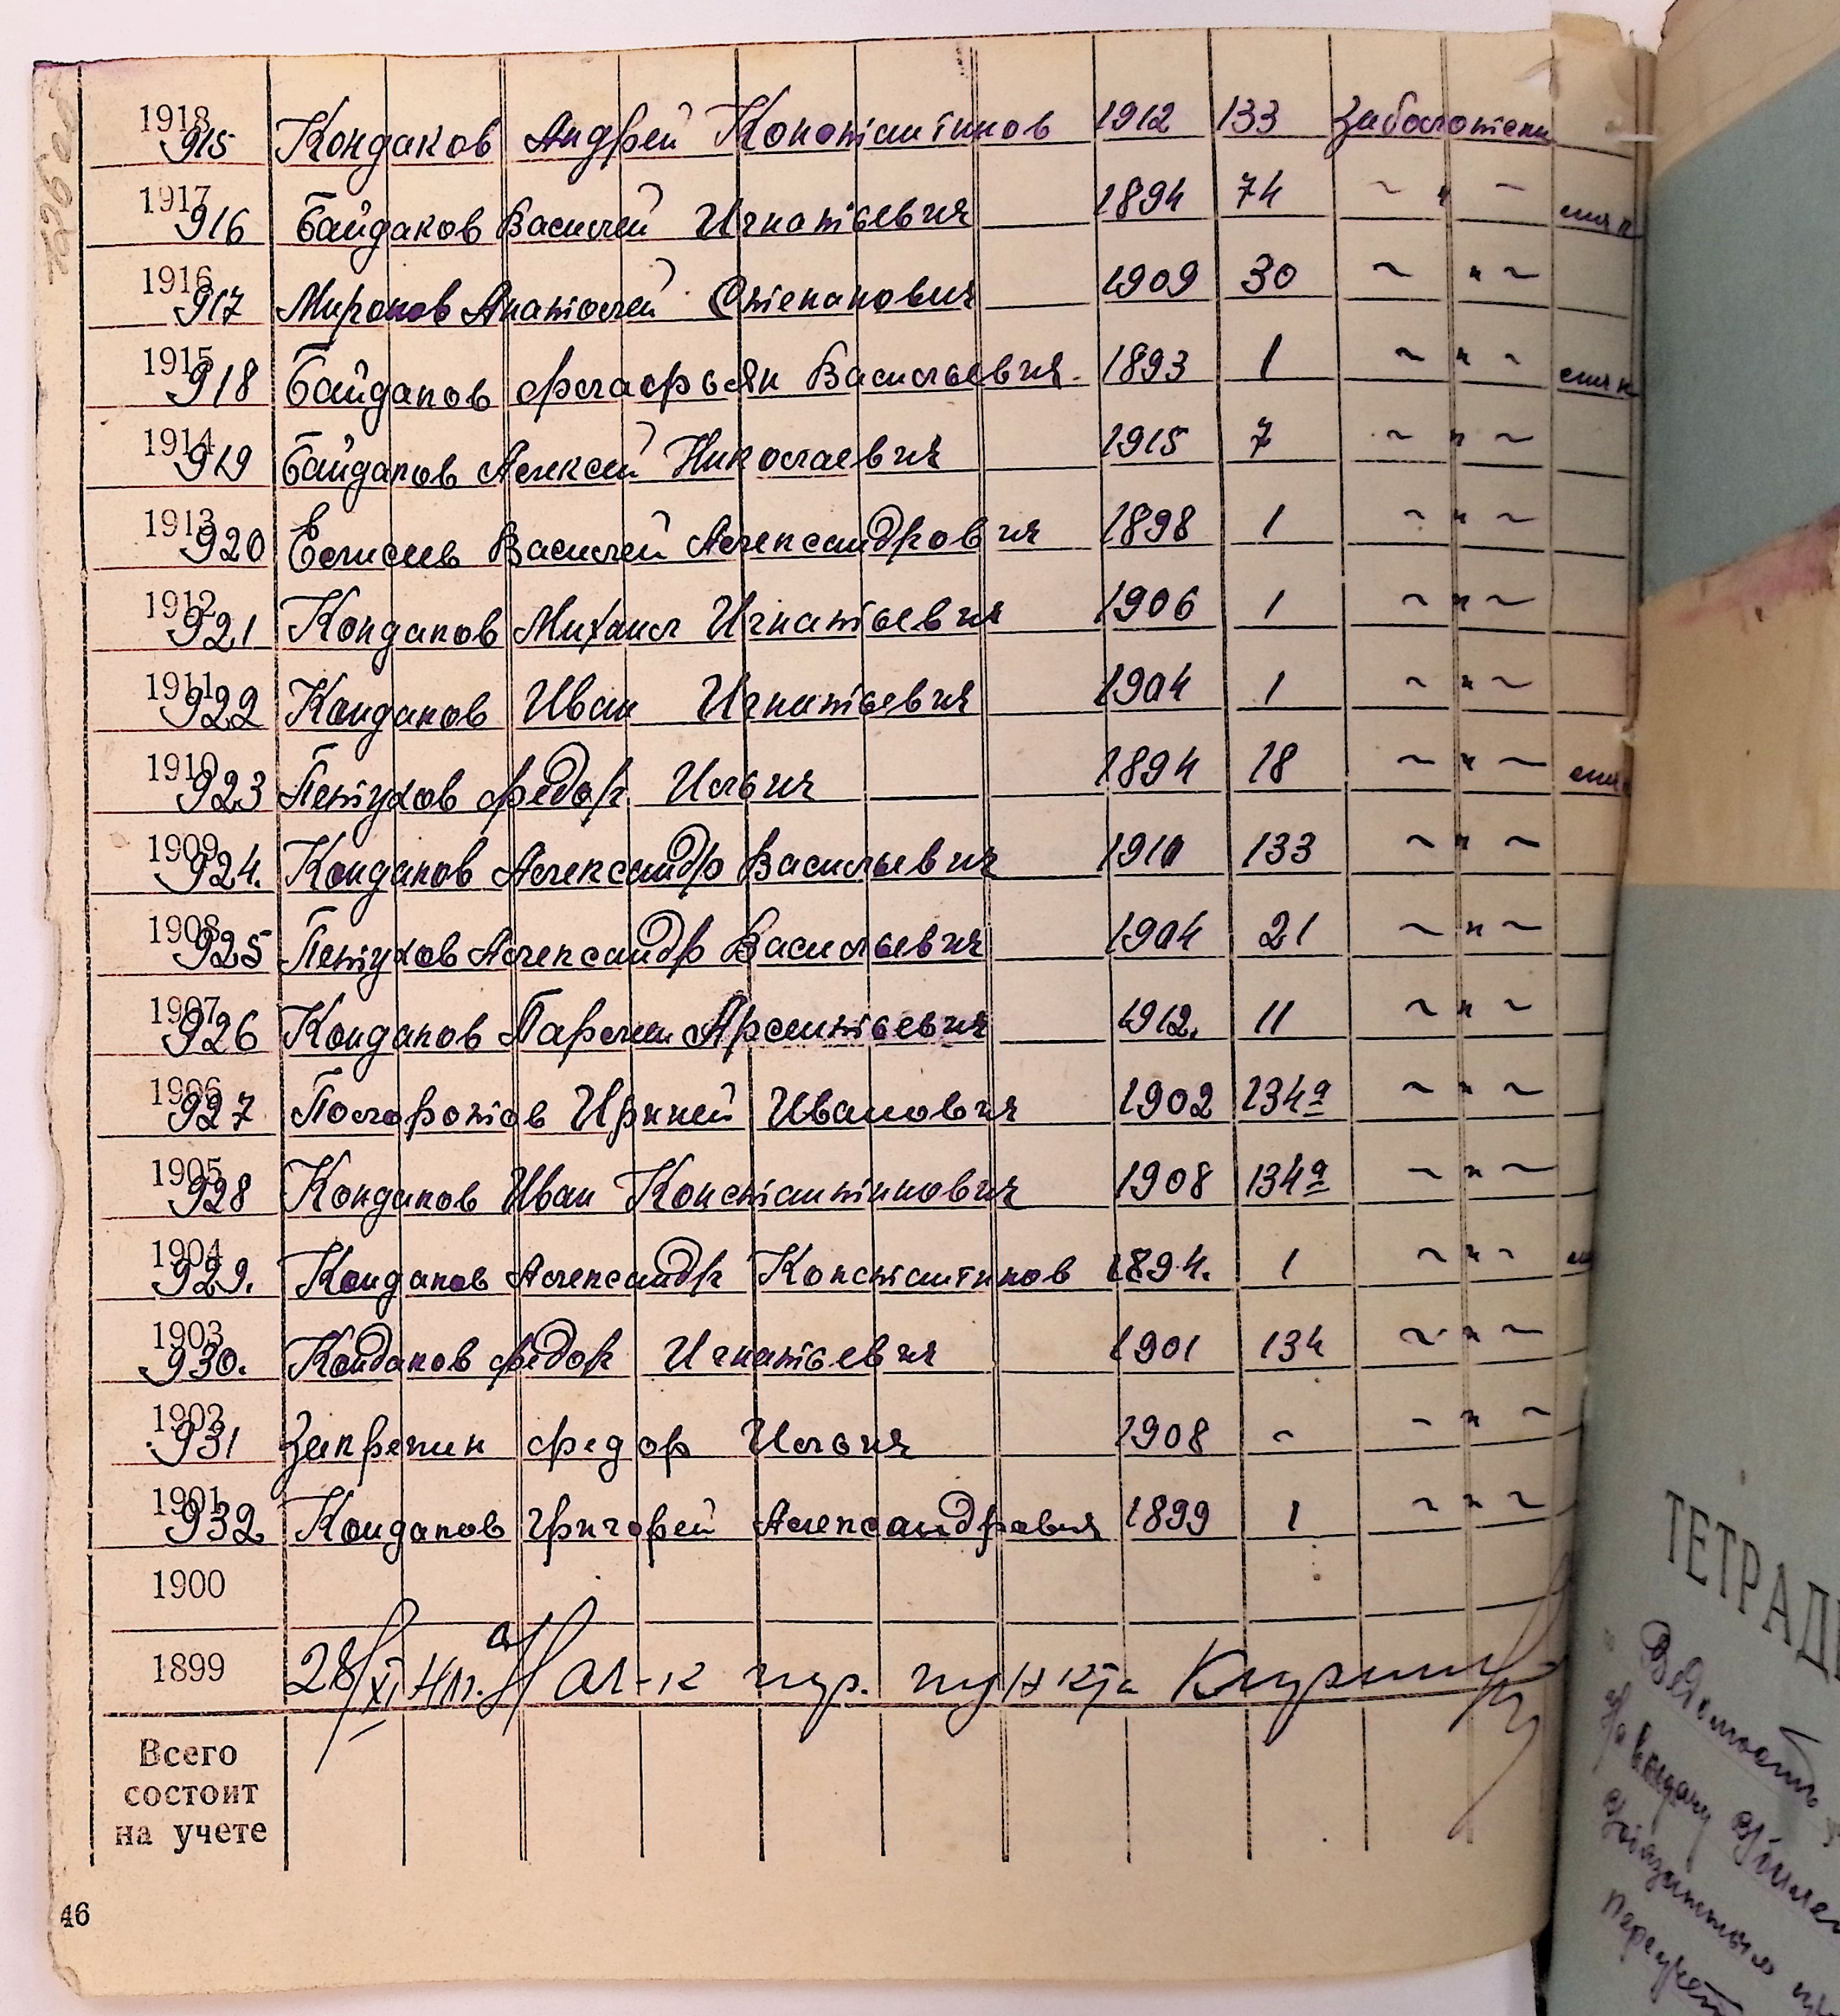 1918
915 Кондаков Андрей Константинов 1912 133 Заболотский
1917
916 Байдаков Василей Игнатьевич 1894 74 ~ " ~
1916
917 Миронов Анатолей Степанович 1909 30 ~ " ~
1915
918 Байдаков Флафрьян Васильевич 1893 1 ~ " ~
1914
919 Байдаков Алексей Николаевич 1915 7 ~ " ~
1913
920 Елисеев Василей Александрович 1898 1 ~ " ~
1912
921 Кондаков Михаил Игнатьевич 1906 1 ~ " ~
1911
922 Кондаков Иван Игнатьевич 1904 1 ~ " ~
1910
923 Петухов Федор Ильич 1894 18 ~ " ~
1909
924. Кондаков Александр Васильевич 1910 133 ~ " ~
1908
925 Петухов Александр Васильевич 1904 21 ~ " ~
1907
926 Кондаков Парфен Арсентьевич 1912. 11 ~ " ~
1906
927 Полоротов Ириней Иванович 1902 134а ~ " ~
1905
928 Кондаков Иван Константинович 1908 134а ~ " ~
1904
929. Кондаков Александр Константинов 1894. 1 ~ " ~
1903
930. Кондаков Федор Игнатьевич 1901 134 ~ " ~
1902
931 Закрепин Федор Ильич 1908 ~ ~ " ~
1901
932 Кондаков Григорей Александравич 1899 1 ~ " ~
1900
1899 28/XI 41г. Нал-к пер. пункта
Всего
состоит
на учете
46
ТЕТРАДЬ
Ведомость
На выдачу